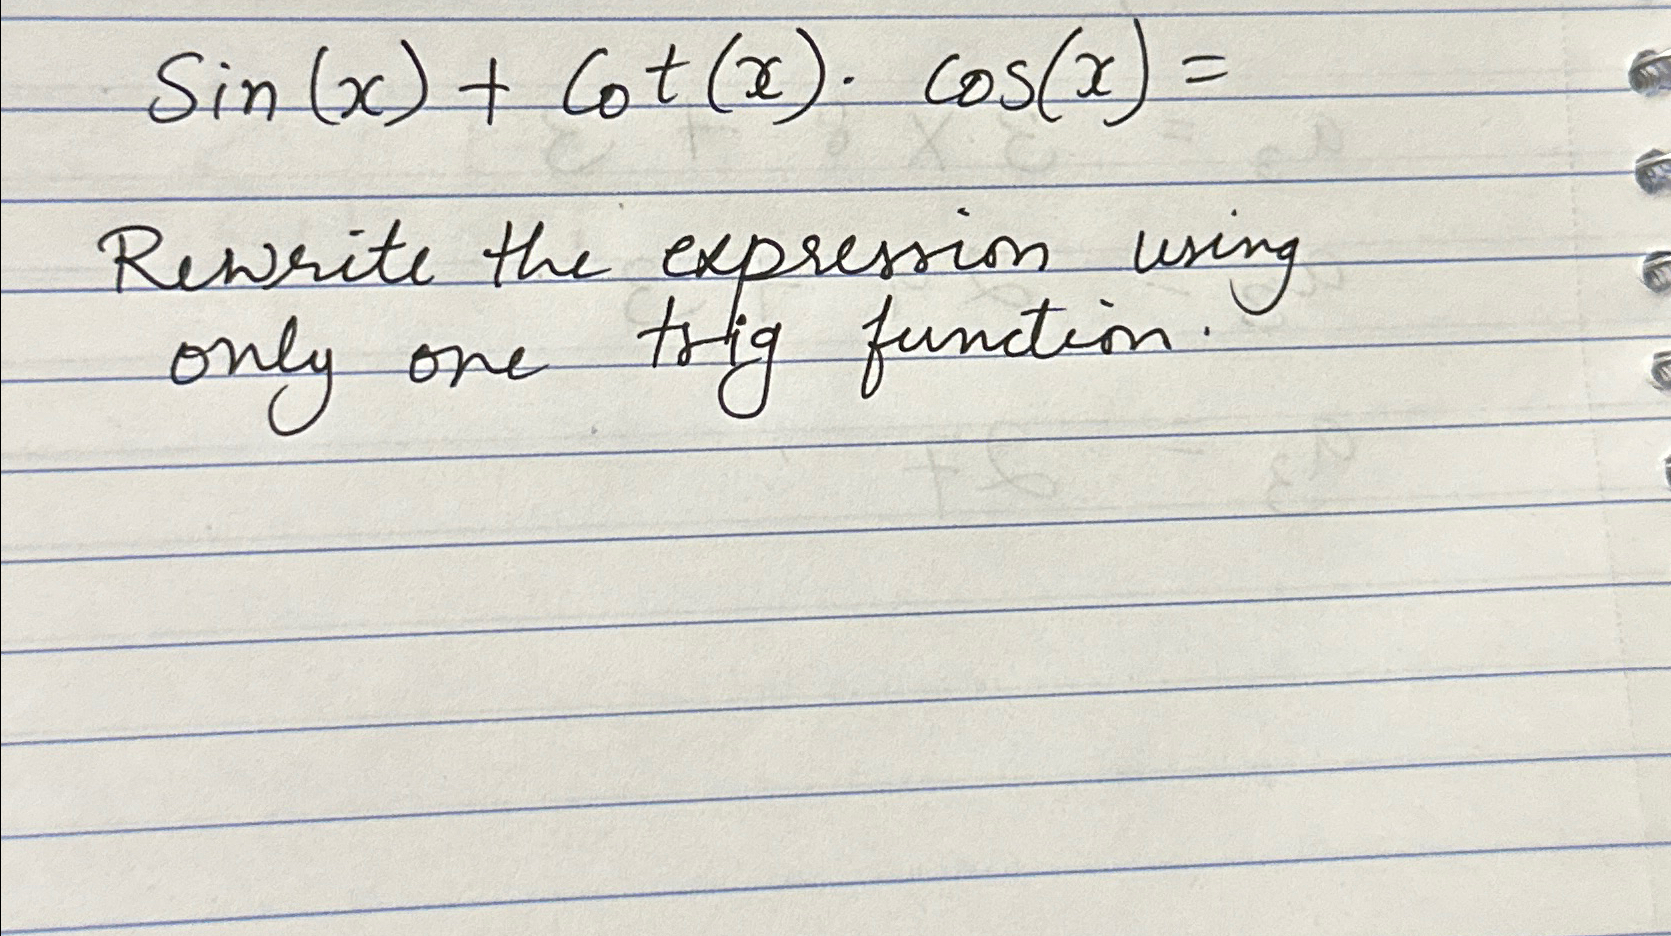 Sin(x) + Cot(x). cos(x) =
Rewrite the expression using
only one trig function.